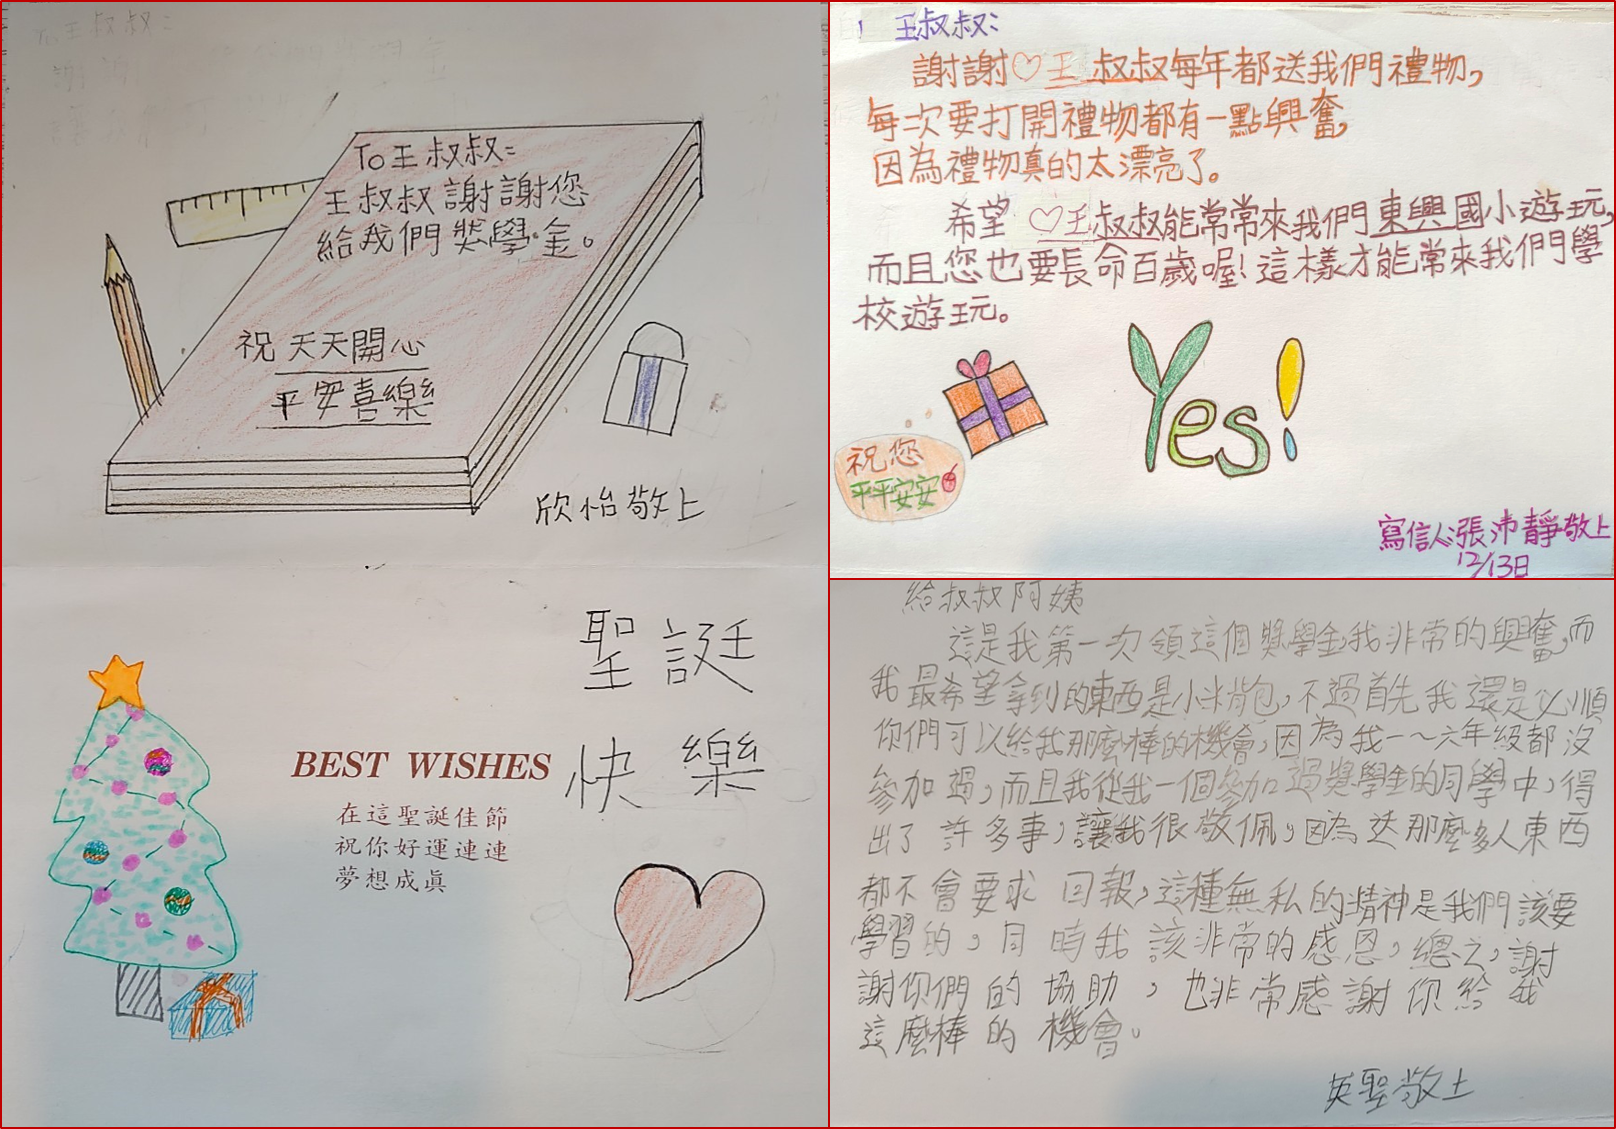 To王叔叔:
王叔叔謝謝您
給我們獎學金。
祝 天天開心
平安喜樂
欣怡敬上
聖誕
快樂
BEST WISHES
在這聖誕佳節
祝你好運連連
夢想成真
王叔叔:
謝謝♡王叔叔每年都送我們禮物,
每次要打開禮物都有一點興奮,
因為禮物真的太漂亮了。
希望♡王叔叔能常常來我們東興國小遊玩,
而且您也要長命百歲喔!這樣才能常來我們學
校遊玩。
Yes!
祝您
平平安安
寫信人:張沛靜敬上
12/13日
給叔叔阿姨
這是我第一次領這個獎學金,我非常的興奮,而
我最希望拿到的東西是小米背包,不過首先我還是必順
你們可以給我那麼棒的機會,因為我一~六年級都沒
參加過,而且我從我一個參加過獎學金的同學中,得
出了許多事,讓我很敬佩,因為送那麼多人東西
都不會要求回報,這種無私的精神是我們該要
學習的,同時我該非常的感恩,總之,謝
謝你們的協助,也非常感謝你給我
這麼棒的機會。
英聖敬上